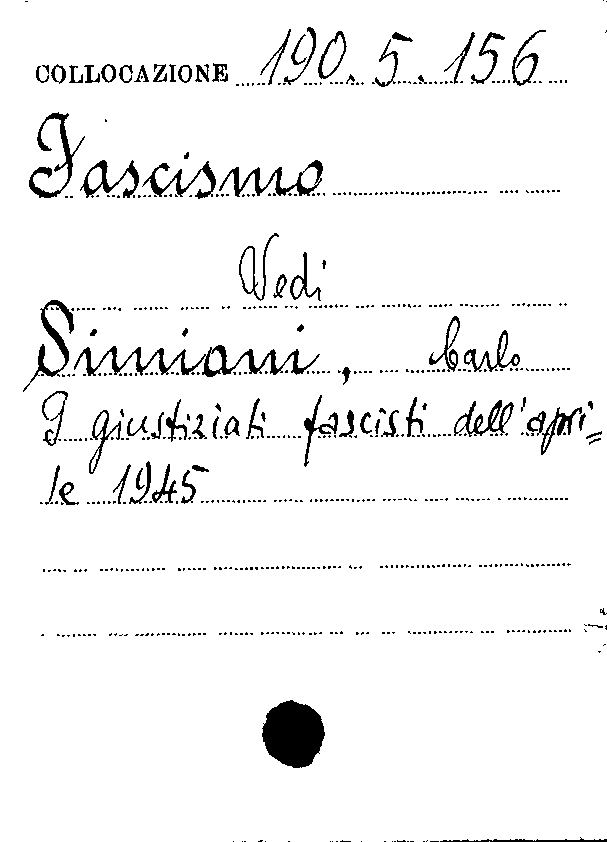 COLLOCAZIONE 190.5.156
Fascismo
Vedi
Simiani, Carlo
I giustiziati fascisti dell'apri=
le 1945